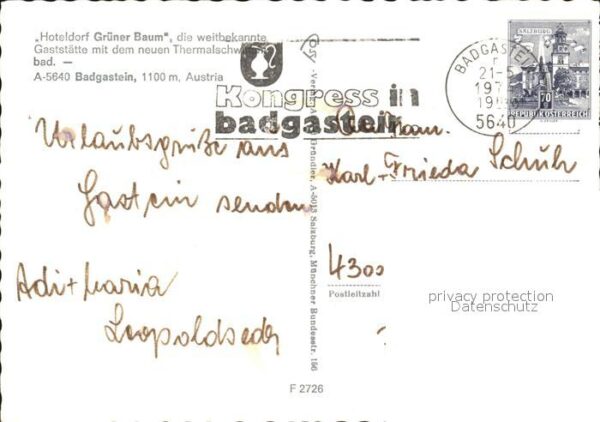 „Hoteldorf Grüner Baum", die weitbekannte
Gaststätte mit dem neuen Thermalschwimm-
bad. —
A-5640 Badgastein, 1100 m, Austria
Kongress in
badgastein
BADGASTEIN
21-
197
5640
SALZBURG
70
REPUBLIK ÖSTERREICH
Urlaubsgrüße aus
Gastein senden
Adi + Maria
Leopoldseder
Fam.
Karl + Frieda Schuh
4300
Postleitzahl
privacy protection
Datenschutz
A-5013 Salzburg, Münchner Bundesstr. 156
F 2726